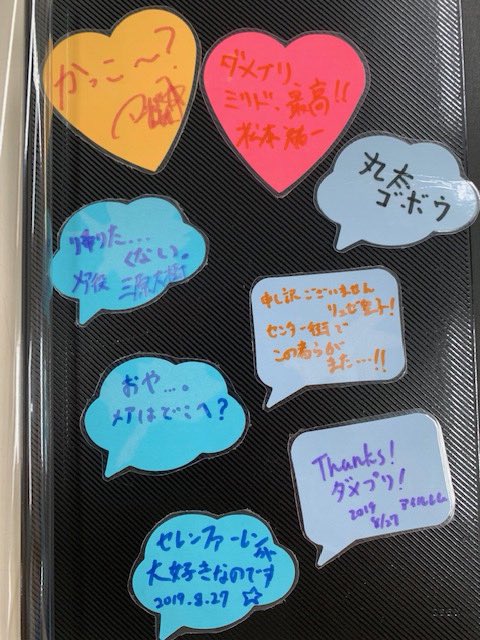 かっこ〜?
ダメプリ、
ミリド、最高!!
松本祐一
丸本
ゴボウ
帰りた…
くない。
メア役 三原大樹
申し訳ございません
リュゼ皇子!
センター街で
この者らが
また…!!
おや…。
メアはどこへ?
Thanks!
ダメプリ!
2019
8/27
セレンファーレンが
大好きなのです
2019.8.27 ☆